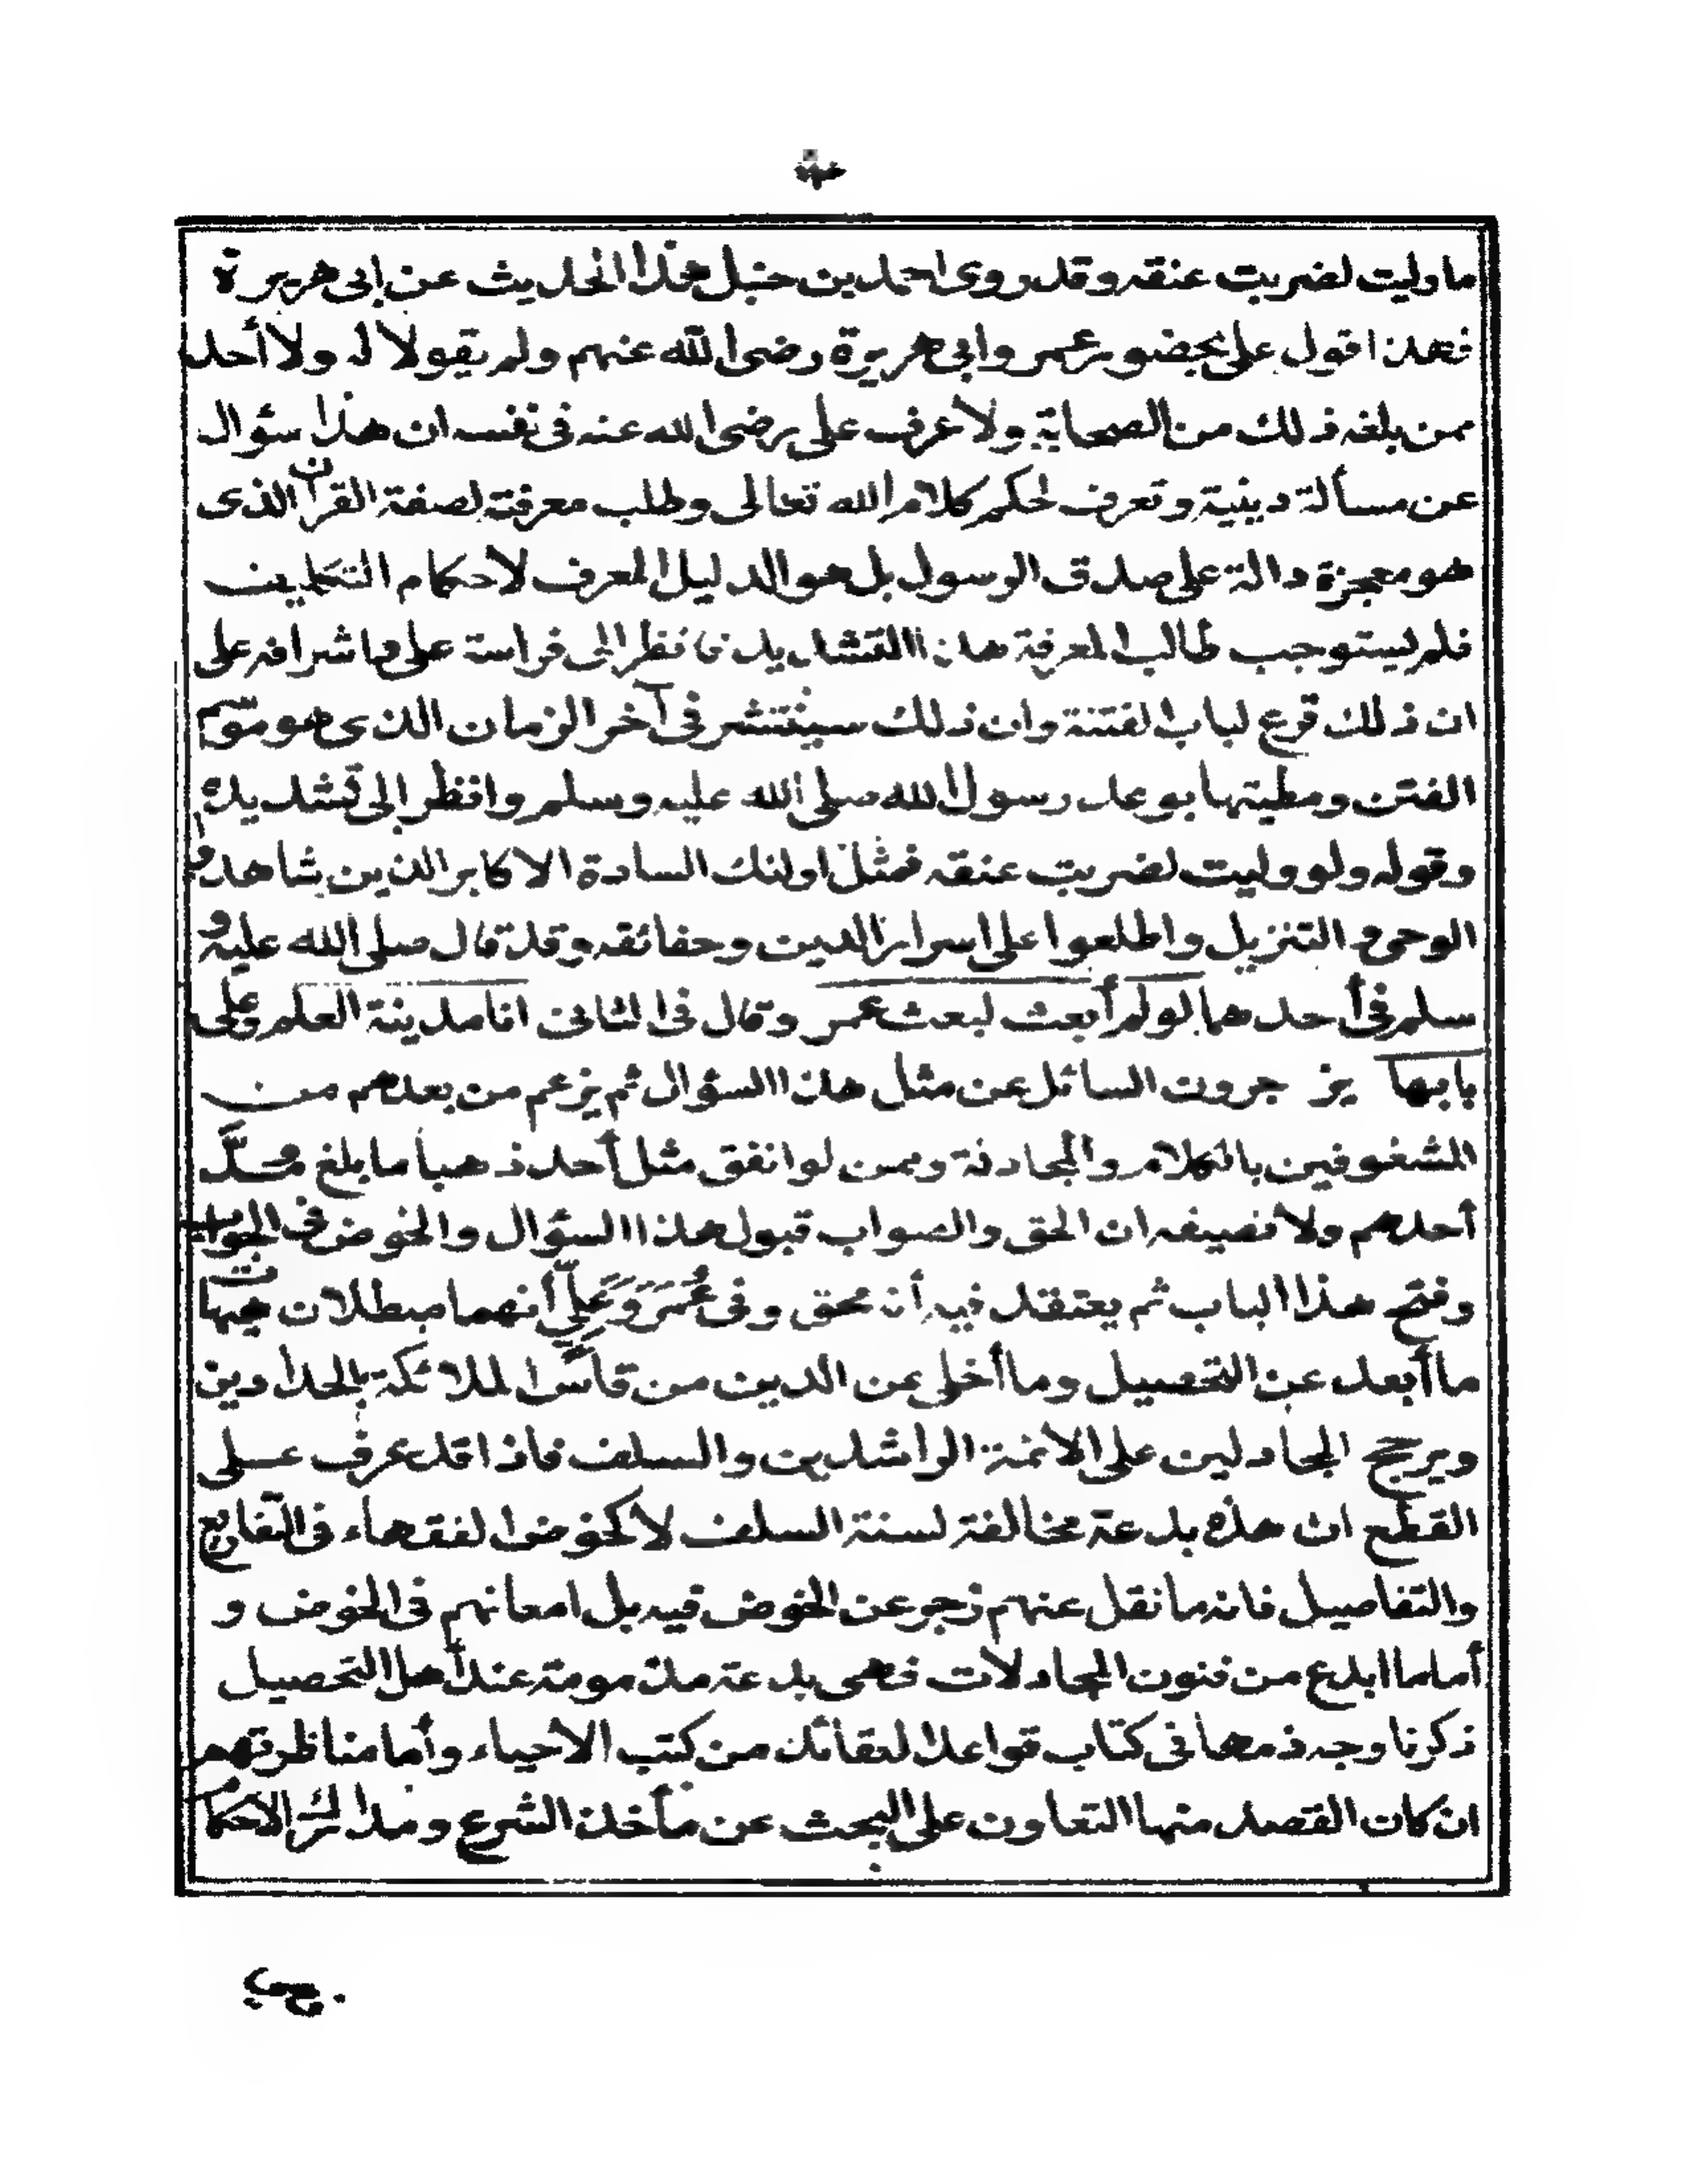 ما وليت لضربت عنقه وقد روى احمد بن حنبل هذا الحديث عن ابى هريرة
فهذا قول على بحضور عمر وابى هريرة رضى الله عنهم ولم يقولا له ولا أحد
ممن بلغه ذلك من الصحابة ولا عرف على رضى الله عنه فى نفسه ان هذا سؤال
عن مسألة دينية وتعرف لحكم كلام الله تعالى وطلب معرفة لصفة القرآن الذى
هو معجزة دالة على صدق الرسول بل هو الدليل المعرف لاحكام التكليف
فلم يستوجب طالب المعرفة هذا التشديد فانظر الى فراسة على واشرافه على
ان ذلك قرع لباب الفتنة وان ذلك سينتشر فى آخر الزمان الذى هو موسم
الفتن ومطيتها بوعد رسول الله صلى الله عليه وسلم وانظر الى تشديده
وقوله ولو وليت لضربت عنقه فمثل اولئك السادة الاكابر الذين شاهدوا
الوحى والتنزيل واطلعوا على اسرار الدين وحقائقه وقد قال صلى الله عليه و
سلم فى أحدهما لو لم أبعث لبعث عمر وقال فى الثانى انا مدينة العلم وعلى
بابها يز جرون السائل عن مثل هذا السؤال ثم يزعم من بعدهم من
المشغوفين بالكلام والمجادلة وممن لو انفق مثل أحد ذهبا ما بلغ مدّ
أحدهم ولا نصيفه ان الحق والصواب قبول هذا السؤال والخوض فى الجواب
وفتح هذا الباب ثم يعتقد فيه أنه محق وفى عُمَرَ وَعَلِيٍّ أنهما مبطلان هيهات
ما أبعد عن التحصيل وما أخلى عن الدين من قاس الملائكة بالحدادين
ويرجح المجادلين على الائمة الراشدين والسلف فاذا قد عرف على
القطع ان هذه بدعة مخالفة لسنة السلف لا كخوض الفقهاء فى التفاريع
والتفاصيل فانه ما نقل عنهم زجر عن الخوض فيه بل امعانهم فى الخوض و
أما ما ابدع من فنون المجادلات فهى بدعة مذمومة عند أهل التحصيل
ذكرنا وجه ذمها فى كتاب قواعد العقائد من كتب الاحياء وأما مناظرتهم
ان كان القصد منها التعاون على البحث عن مأخذ الشرع ومدارك الاحكام